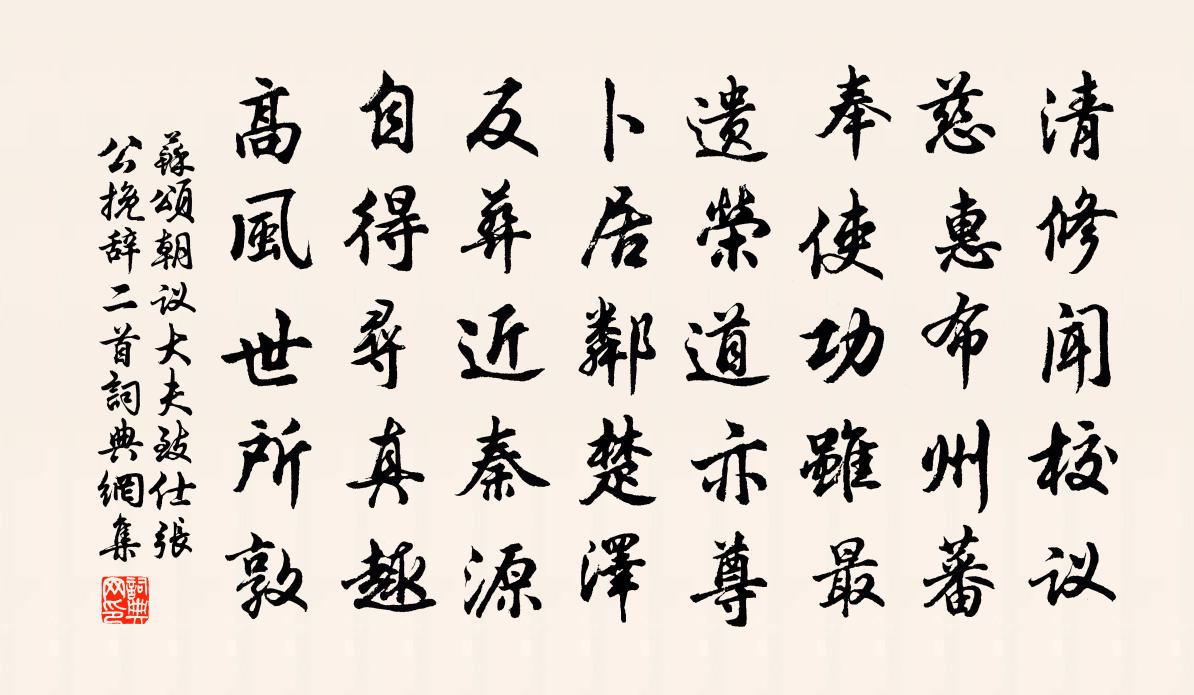 清修闻校议
慈惠布州蕃
奉使功雖最
遗榮道亦尊
卜居鄰楚澤
反葬近秦源
自得尋真趣
髙風世所敦
蘇頌朝议大夫致仕張
公挽辞二首詞典網集
詞典
网印